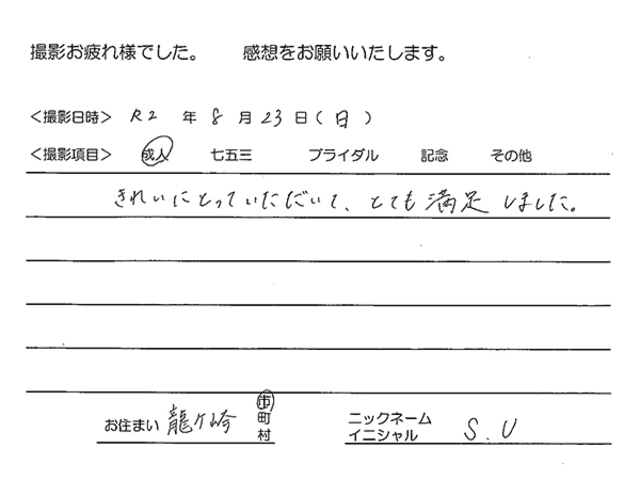 撮影お疲れ様でした。　感想をお願いいたします。
<撮影日時> R2 年 8 月 23 日 ( 日 )
<撮影項目> 成人 七五三 ブライダル 記念 その他
きれいにとっていただいて、とても満足しました。
お住まい 龍ケ崎 市 町 村 ニックネーム イニシャル S.U